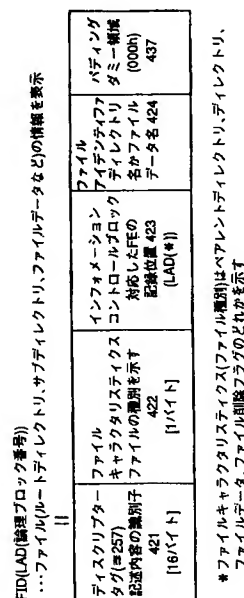 FID(LAD(論理ブロック番号))
…ファイル(ルートディレクトリ、サブディレクトリ、ファイルデータなど)の情報を表示
||
ディスクリプター
タグ(=257)
記述内容の識別子
421
[16バイト]
ファイル
キャラクタリスティクス
ファイルの種別を示す
422
[1バイト]
インフォメーション
コントロールブロック
対応したFEの
記録位置 423
(LAD(*))
ファイル
アイデンティファ
ディレクトリ
名かファイル
データ名 424
パディング
ダミー領域
(000h)
437
*ファイルキャラクタリスティクス(ファイル種別)はペアレントディレクトリ、ディレクトリ、
ファイルデータ、ファイル削除フラグのどれかを示す